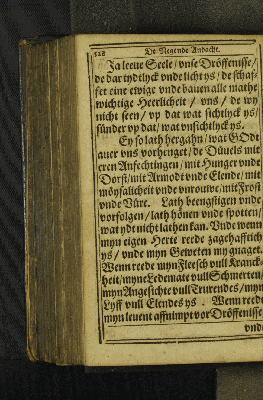 128 De Negende Andacht.
Ja leeue Seele / vnse Dröffenisse /
de dar tydtlyck vnde licht ys / de schaf-
fet eine ewige vnde bauen alle mathe
wichtige Heerlicheit / vns / de wy
nicht seen / vp dat wat sichtlyck ys /
sünder vp dat / wat vnsichtlyck ys.
Ey so lath hergahn / wat GOdt
auer vns vorhenget / de Düuels mit
eren Anfechtingen / mit Hunger vnde
Dorst / mit Armodt vnde Elende / mit
möysalicheit vnde vnrouwe / mit Frost
vnde Vüre. Lath beengstigen vnde
vorfolgen / lath hönen vnde spotten /
wat ydt nicht lathen kan. Vnde wenn
myn eigen Herte reede zagehafftich
ys / vnde myn Geweten my gnaget.
Wenn reede myn Fleesch vull Kranck-
heit / myne Ledemate vull Schmerten /
myn Angesichte vull Trurendes / myn
Lyff vull Elendes ys. Wenn reede
myn leuent affnimpt vor Dröffenisse
vnde